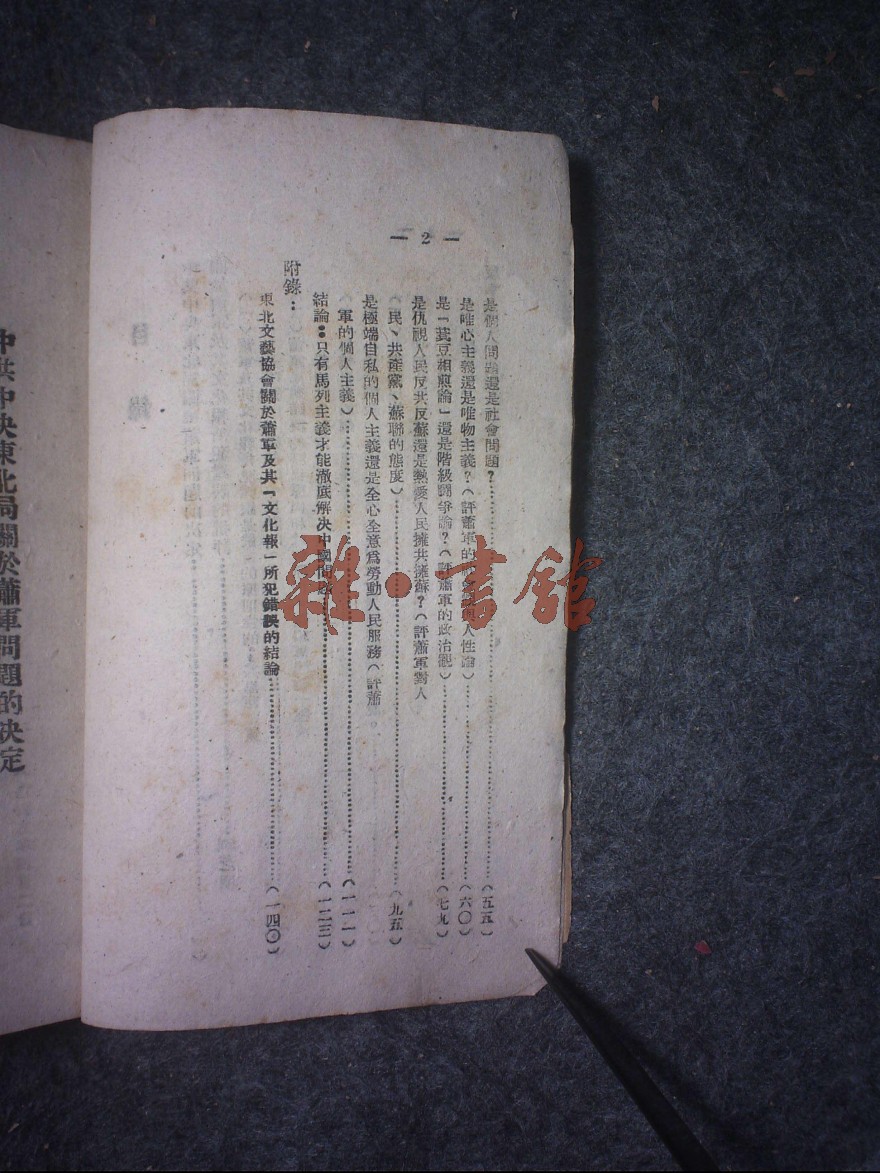 — 2 —
是個人問題還是社會問題？……（五五）
是唯心主義還是唯物主義？（評蕭軍的社會觀與人性論）……（六〇）
是「萁豆相煎論」還是階級鬪爭論？（評蕭軍的政治觀）……（七九）
是仇視人民反共反蘇還是熱愛人民擁共擁蘇？（評蕭軍對人
民、共產黨、蘇聯的態度）……（九五）
是極端自私的個人主義還是全心全意爲勞動人民服務（評蕭
軍的個人主義）……（一一一）
結論：只有馬列主義才能澈底解決中國問題……（一二三）
附錄：
東北文藝協會關於蕭軍及其「文化報」所犯錯誤的結論……（一四〇）
中共中央東北局關於蕭軍問題的決定
雜·書館